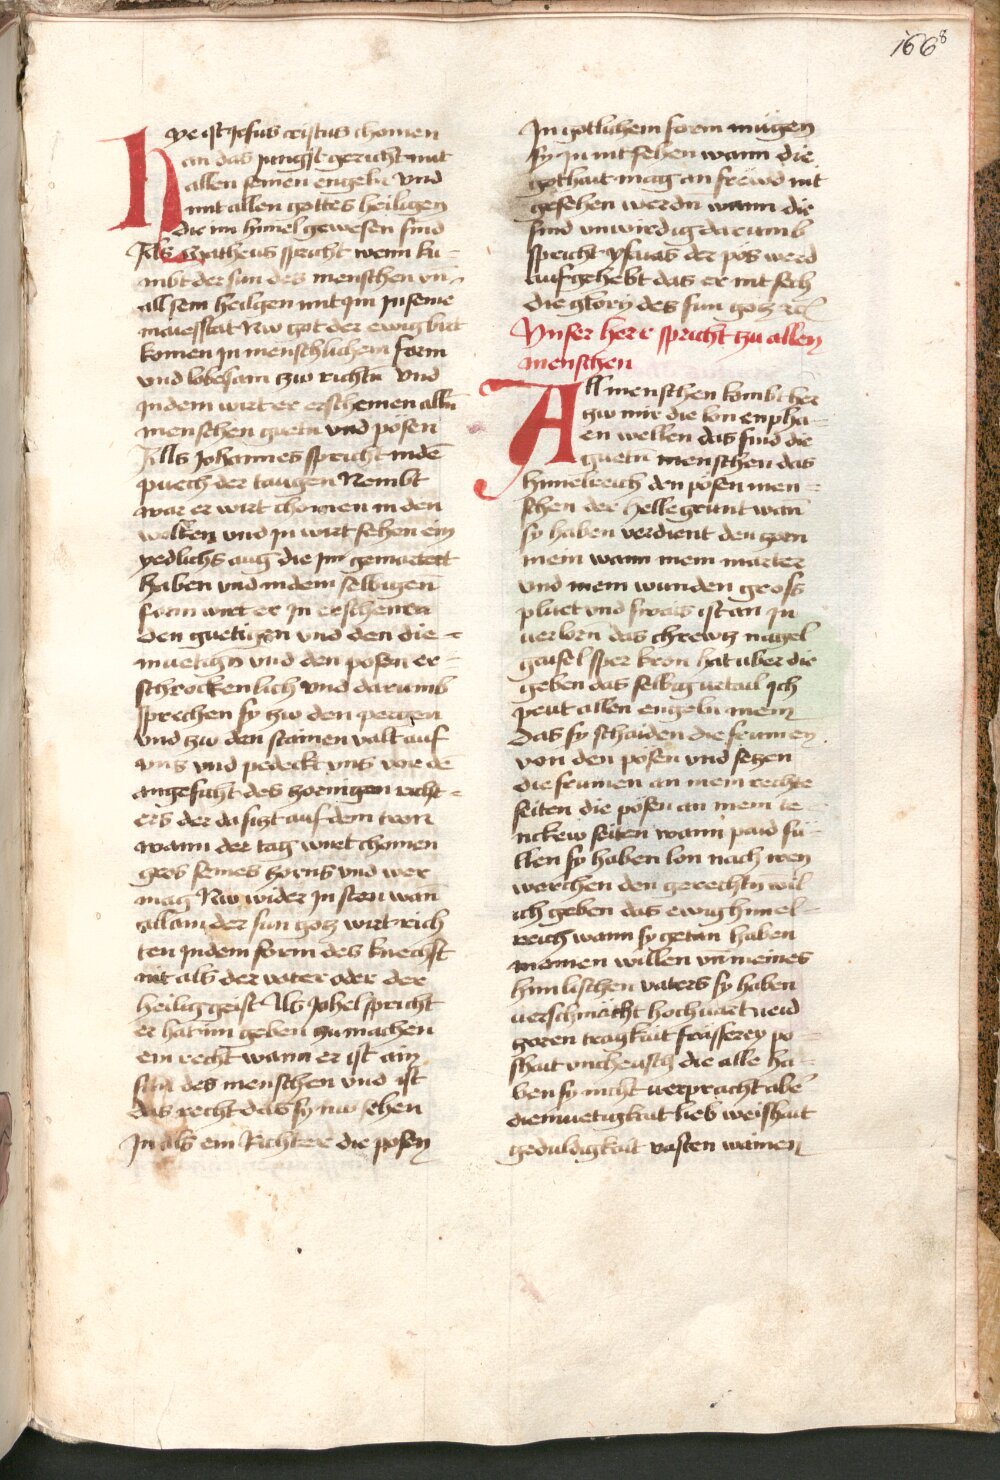 166⁸
Hye ist Jesus cristus chomen
an das jungst gericht mit
allen seinen engeln vnd
mit allen gottes heiligen
die im himel gewesen sind
Als Matheus spricht wenn ku-
mbt der sun des menschen vn-
all sein heiligen mit im in seine
maiesstat Nw gat der ewig
komen in menschlichem form
vnd lobesam zw richtn vnd
indem wirt er erscheinen alln
menschen guetn vnd posen
Alls Johannes spricht in dē
puech der taugen Nembt
war er wirt chomen in den
wolken vnd in wirt sehen ein
yedlichs aug die im gemartert
haben vnd indem selbigen
form wirt er in erscheinen
den guetigen vnd den die-
muetign vnd den posen er-
schrockenlich vnd darumb
sprechen sy zw den pergen
vnd zw den stainen valt auf
vns vnd pedeckt vns vor dē
angesicht des zornigen richt-
ers der da sizt auf dem tron
wann der tag wirt chomen
gros seines zorns vnd wer
mag Nw wider in sten wan̄
allain der sun gotz wirt rich
ten indem form des knechst
nit als der vater oder der
heilig geist Als Johel spricht
er hat im geben zu machen
ein recht wann er ist ain
sun des menschen vnd ist
das recht das sy nw sehen
In als ein Richter die posen
In gotlichem form mugen
sy in nit sehen wann die
gothait mag an frewd nit
gesehen werdn wann die
sind vnwirdig darumb
spricht ysaias der pös werd
aufgehebt das er nit sech
die glory des sun gotz
Vnser herr spricht zu allen
menschen
All menschen kombt her
zw mir die lon enpha-
en wellen das sind die
guetn menschen das
himelreich den pösen men-
schen der helle grunt wan̄
sy haben verdient den zorn
mein wann mein marter
vnd mein wunden gross
pluet vnd swais ist an in
verlorn das chrewtz nagel
gaisel sper kron hat uber die
geben das selbig urtail Ich
peut allen engeln mein
das sy schaiden die frumen
von den posen vnd setzen
die frumen an mein rechte
seiten die pösen an mein le-
nckew seiten wann paid sü-
llen sy haben lon nach iren
werchen den gerechtn wil
ich geben das ewig himel-
reich wann sy getan haben
meinen willen vn meines
himlischen vaters sy haben
verschmächt hochuart neid
zoren tragkait frässerey po-
shait vncheusch die alle ha-
ben sy nicht verpracht aber
diemuetigkait lieb weishait
geduldigkait vasten wainen